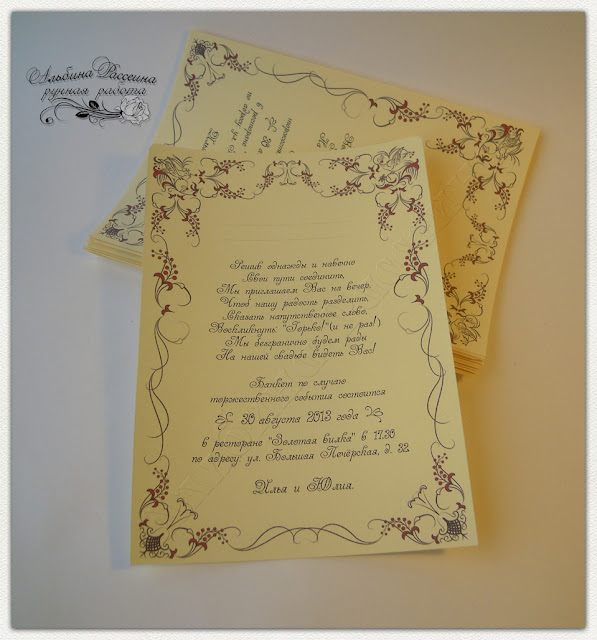 Альбина Рассеина
ручная работа
Решив однажды и навечно
Свои пути соединить,
Мы приглашаем Вас на вечер,
Чтоб нашу радость разделить,
Сказать напутственное слово,
Воскликнуть: "Горько!"(и не раз!)
Мы безгранично будем рады
На нашей свадьбе видеть Вас!
Банкет по случаю
торжественного события состоится
30 августа 2013 года
в ресторане "Золотая вилка" в 17.30
по адресу: ул. Большая Печёрская, д. 32.
Илья и Юлия.